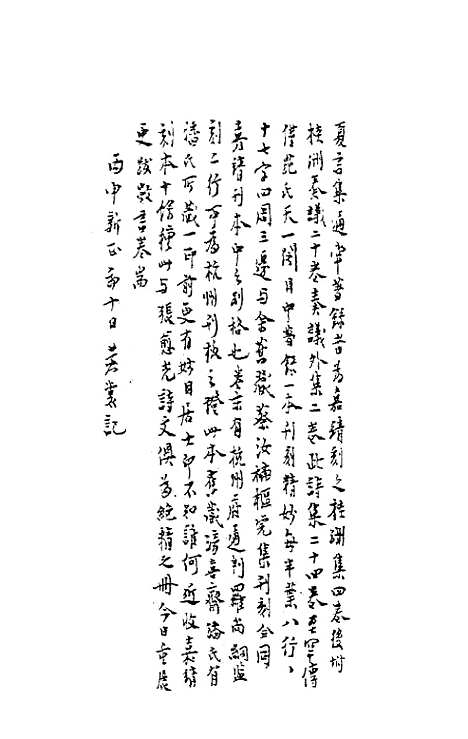 夏言集通常著錄者為嘉靖刻之桂洲集四卷後附
桂洲奏議二十卷奏議外集二卷此詩集二十四卷罕傳
僅范氏天一閣目中著錄一本刊刻精妙每半葉八行行
十七字四周三邊與余舊藏蔡汝楠樞筦集刊刻全同
嘉靖刊本中之別格也卷末有杭州府通判羅尚絅監
刻二行可為杭州刊板之證此本舊藏滂喜齋潘氏有
潘氏所藏一印前更有妙目居士印不知誰何近收嘉靖
刻本十餘種此與張愈光詩文俱為絕精之冊今日重展
更跋數言卷耑
丙申新正初十日 黃裳記